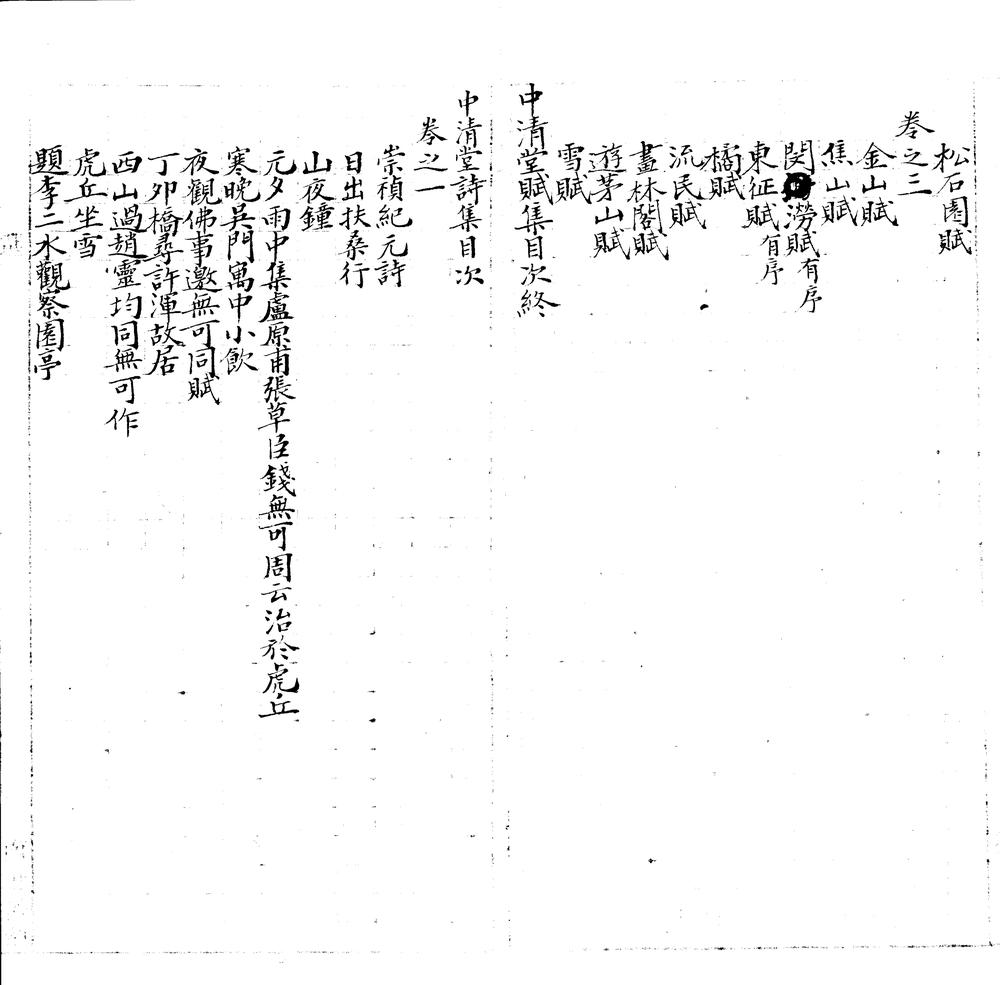 松石園賦
卷之三
金山賦
焦山賦
閔澇賦有序
東征賦有序
橘賦
流民賦
畫林閣賦
遊茅山賦
雪賦
中清堂賦集目次終
中清堂詩集目次
卷之一
崇禎紀元詩
日出扶桑行
山夜鐘
元夕雨中集盧原甫張草臣錢無可周云治於虎丘
寒晚吳門寓中小飲
夜觀佛事邀無可同賦
丁卯橋尋許渾故居
西山過趙靈均同無可作
虎丘坐雪
題李二水觀察園亭